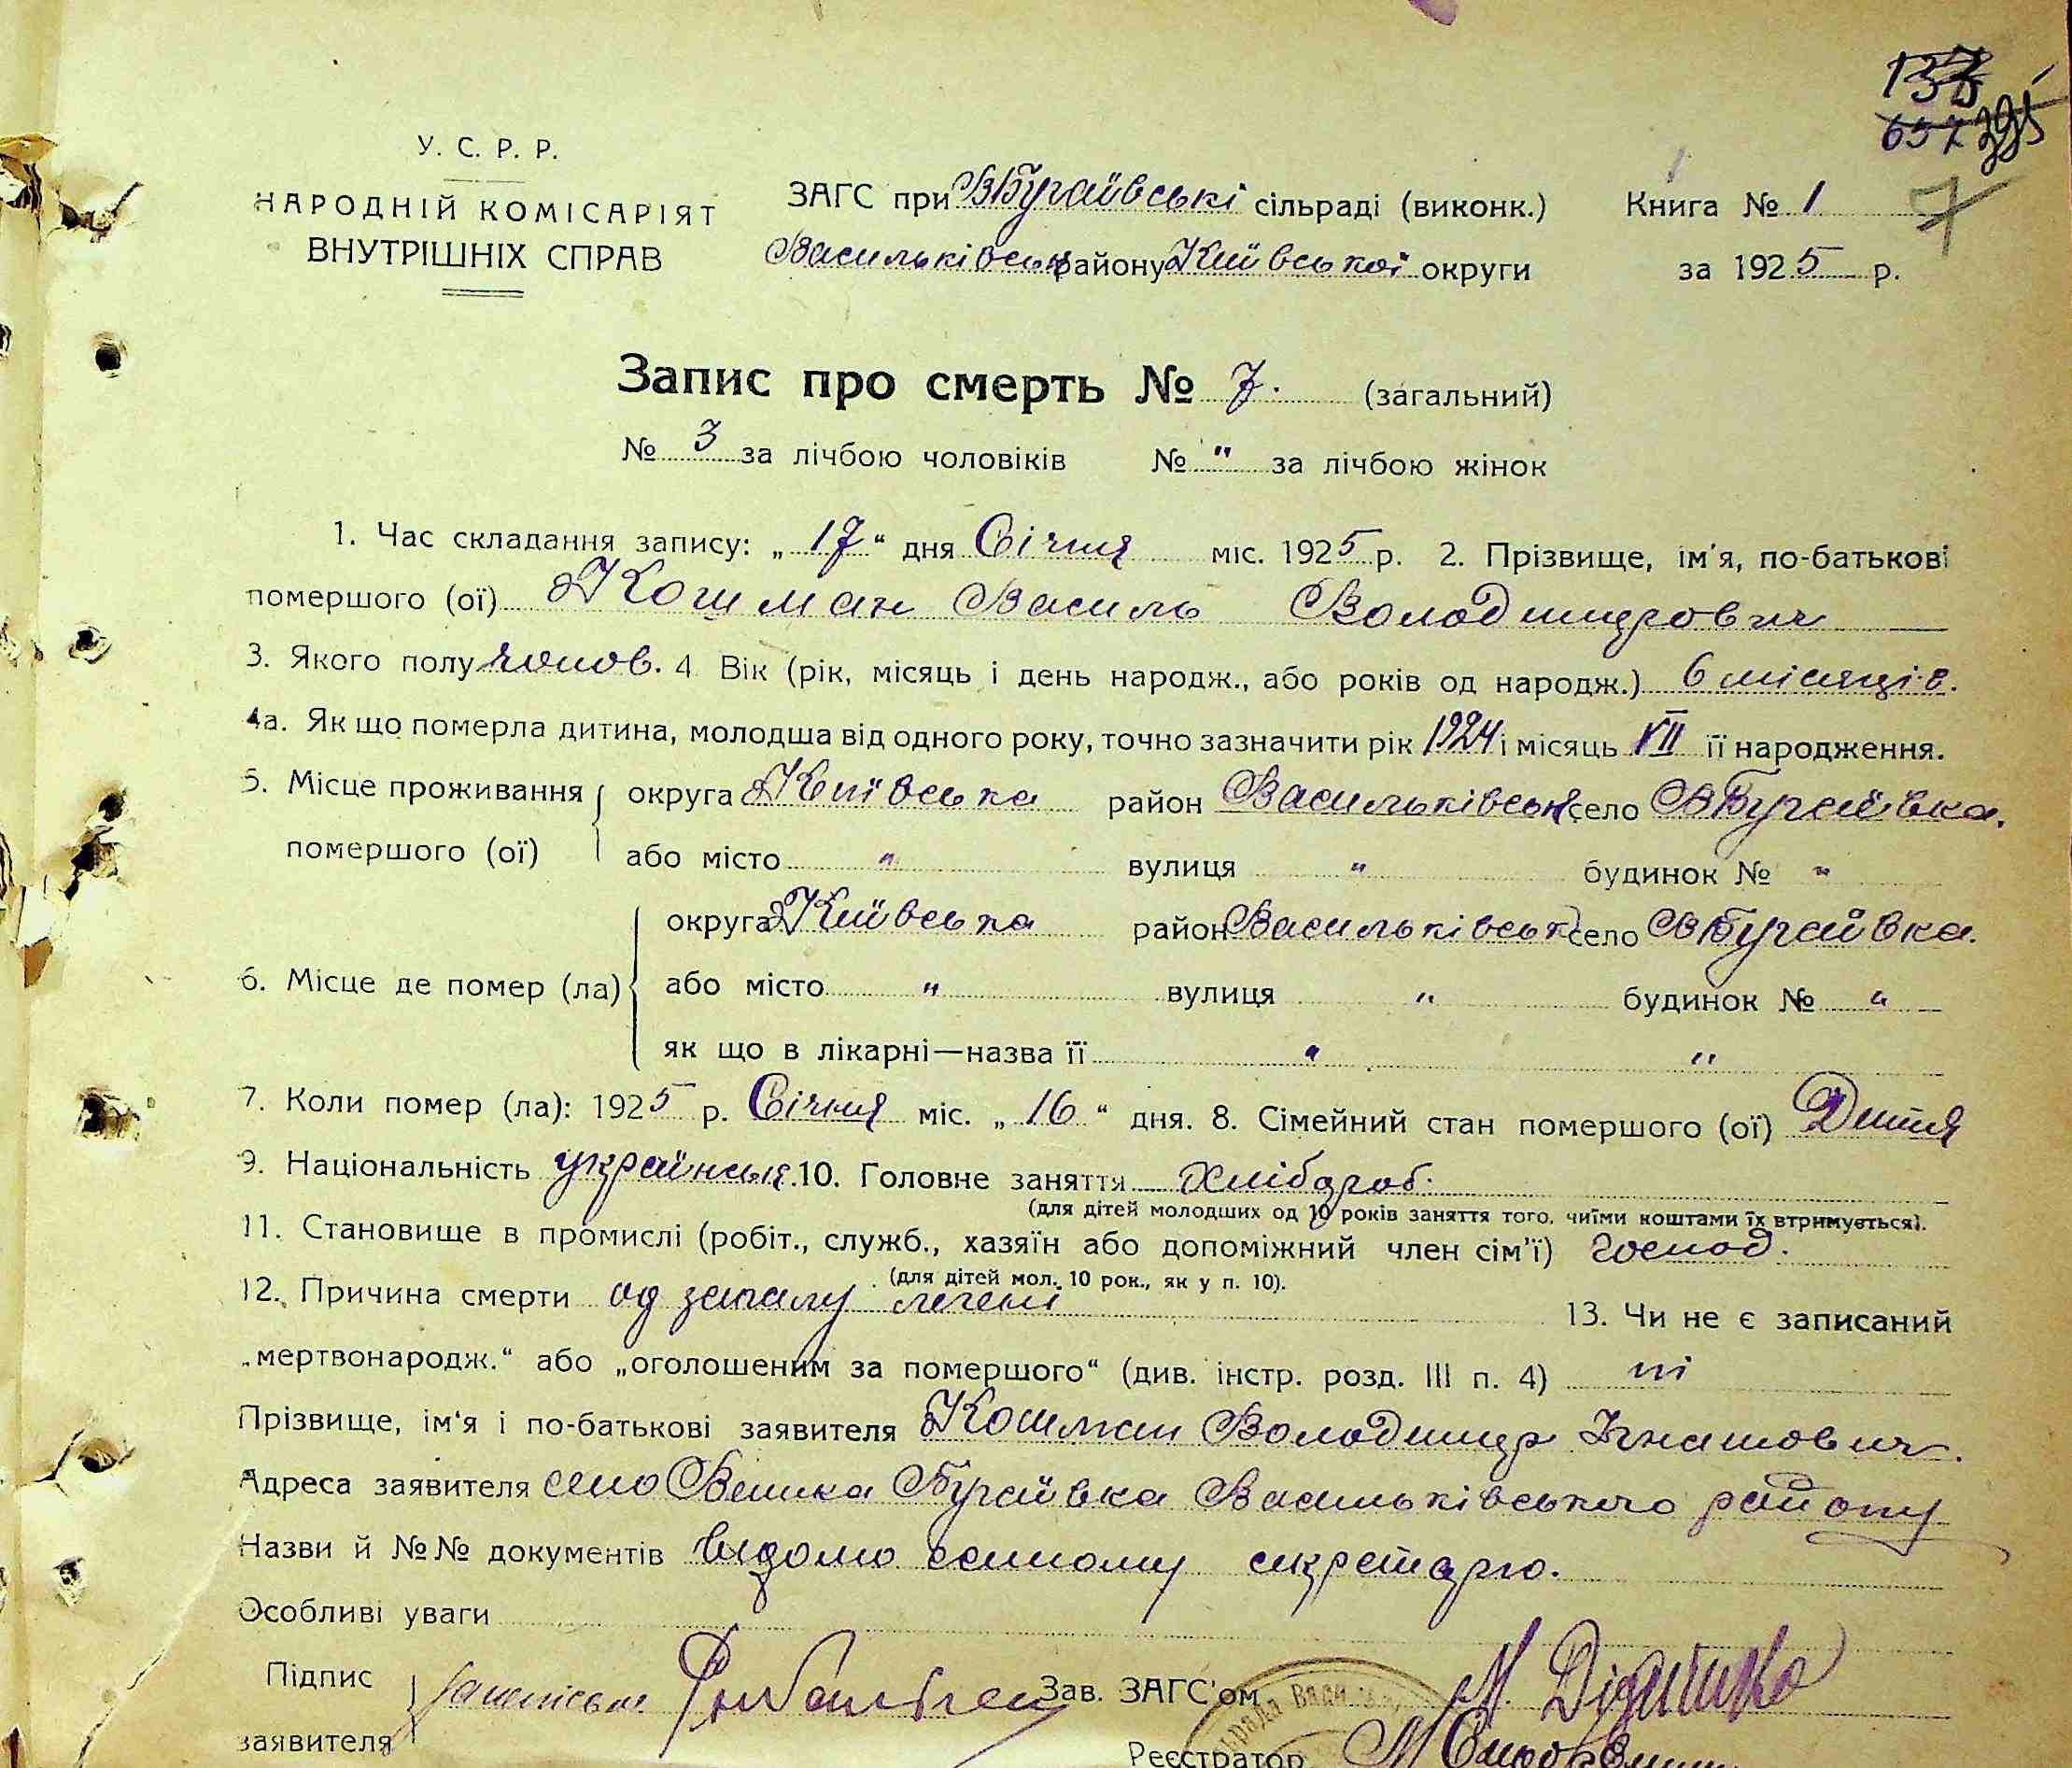 133
657 395
У. С. Р. Р.
НАРОДНІЙ КОМІСАРІЯТ
ВНУТРІШНІХ СПРАВ
ЗАГС при ВБугаївські сільраді (виконк.)
Васильківськ району Київської округи
Книга № 1 7
за 1925 р.
Запис про смерть № 7. (загальний)
№ 3 за лічбою чоловіків № " за лічбою жінок
1. Час складання запису: „17“ дня Січня міс. 1925 р. 2. Прізвище, ім'я, по-батькові
помершого (ої) Кошман Василь Володимирович
3. Якого полу чолов. 4 Вік (рік, місяць і день народж., або років од народж.) 6 місяців.
4а. Як що померла дитина, молодша від одного року, точно зазначити рік 1924 і місяць VII її народження.
5. Місце проживання округа Київська район Васильківськ село ВБугаївка.
помершого (ої) або місто " вулиця " будинок № "
округа Київська район Васильківськ село ВБугаївка.
6. Місце де помер (ла) або місто " вулиця " будинок № "
як що в лікарні—назва її " "
7. Коли помер (ла): 1925 р. Січня міс. „16“ дня. 8. Сімейний стан помершого (ої) Дитя
9. Національність українця. 10. Головне заняття Хлібороб.
(для дітей молодших од 10 років заняття того, чиїми коштами їх втримується).
11. Становище в промислі (робіт., служб., хазяїн або допоміжний член сім'ї) Господ.
(для дітей мол. 10 рок., як у п. 10).
12. Причина смерти од запалу легені 13. Чи не є записаний
„мертвонародж.“ або „оголошеним за помершого“ (див. інстр. розд. III п. 4) ні
Прізвище, ім'я і по-батькові заявителя Кошман Володимир Ігнатович.
Адреса заявителя село Велика Бугаївка Васильківського району
Назви й №№ документів відомо самому секретарю.
Особливі уваги
Підпис
заявителя
Зав. ЗАГС'ом
Реєстратор